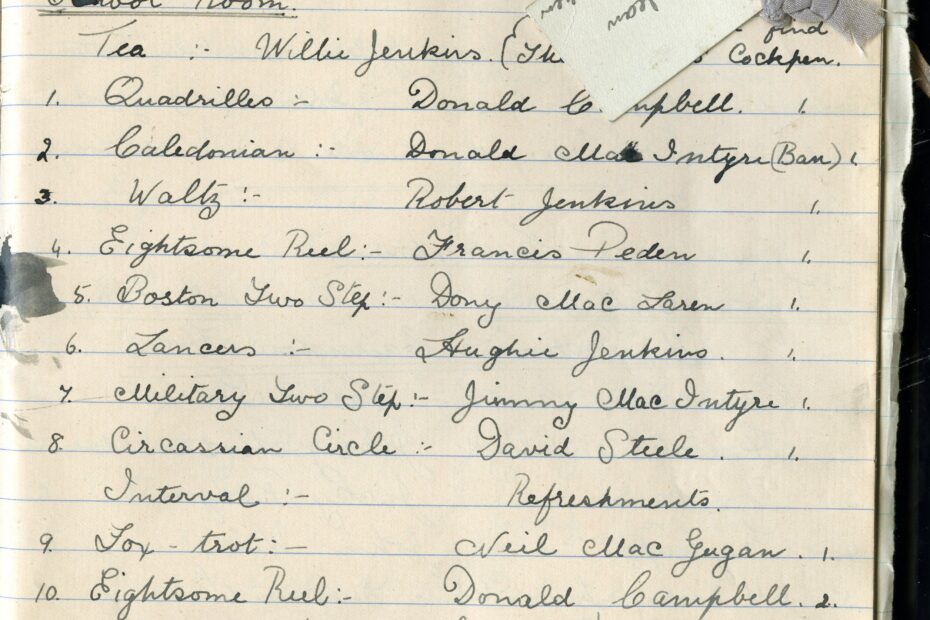 Room.
find
Tea :- Willie Jenkins. Cockpen.
1. Quadrilles :- Donald C mpbell. 1.
2. Caledonian :- Donald Mac Intyre (Ban) 1.
3. Waltz :- Robert Jenkins 1.
4. Eightsome Reel :- Francis Peden 1.
5. Boston Two Step :- Dony Mac Laren 1.
6. Lancers :- Hughie Jenkins. 1.
7. Military Two Step :- Jimmy Mac Intyre 1.
8. Circassian Circle :- David Steele . 1.
Interval :- Refreshments.
9. Fox - trot :- Neil Mac Gugan . 1.
10. Eightsome Reel :- Donald Campbell. 2.
Jean